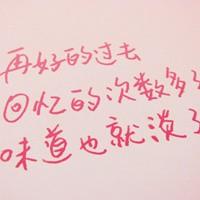 再好的过去
回忆的次数多了
味道也就淡了